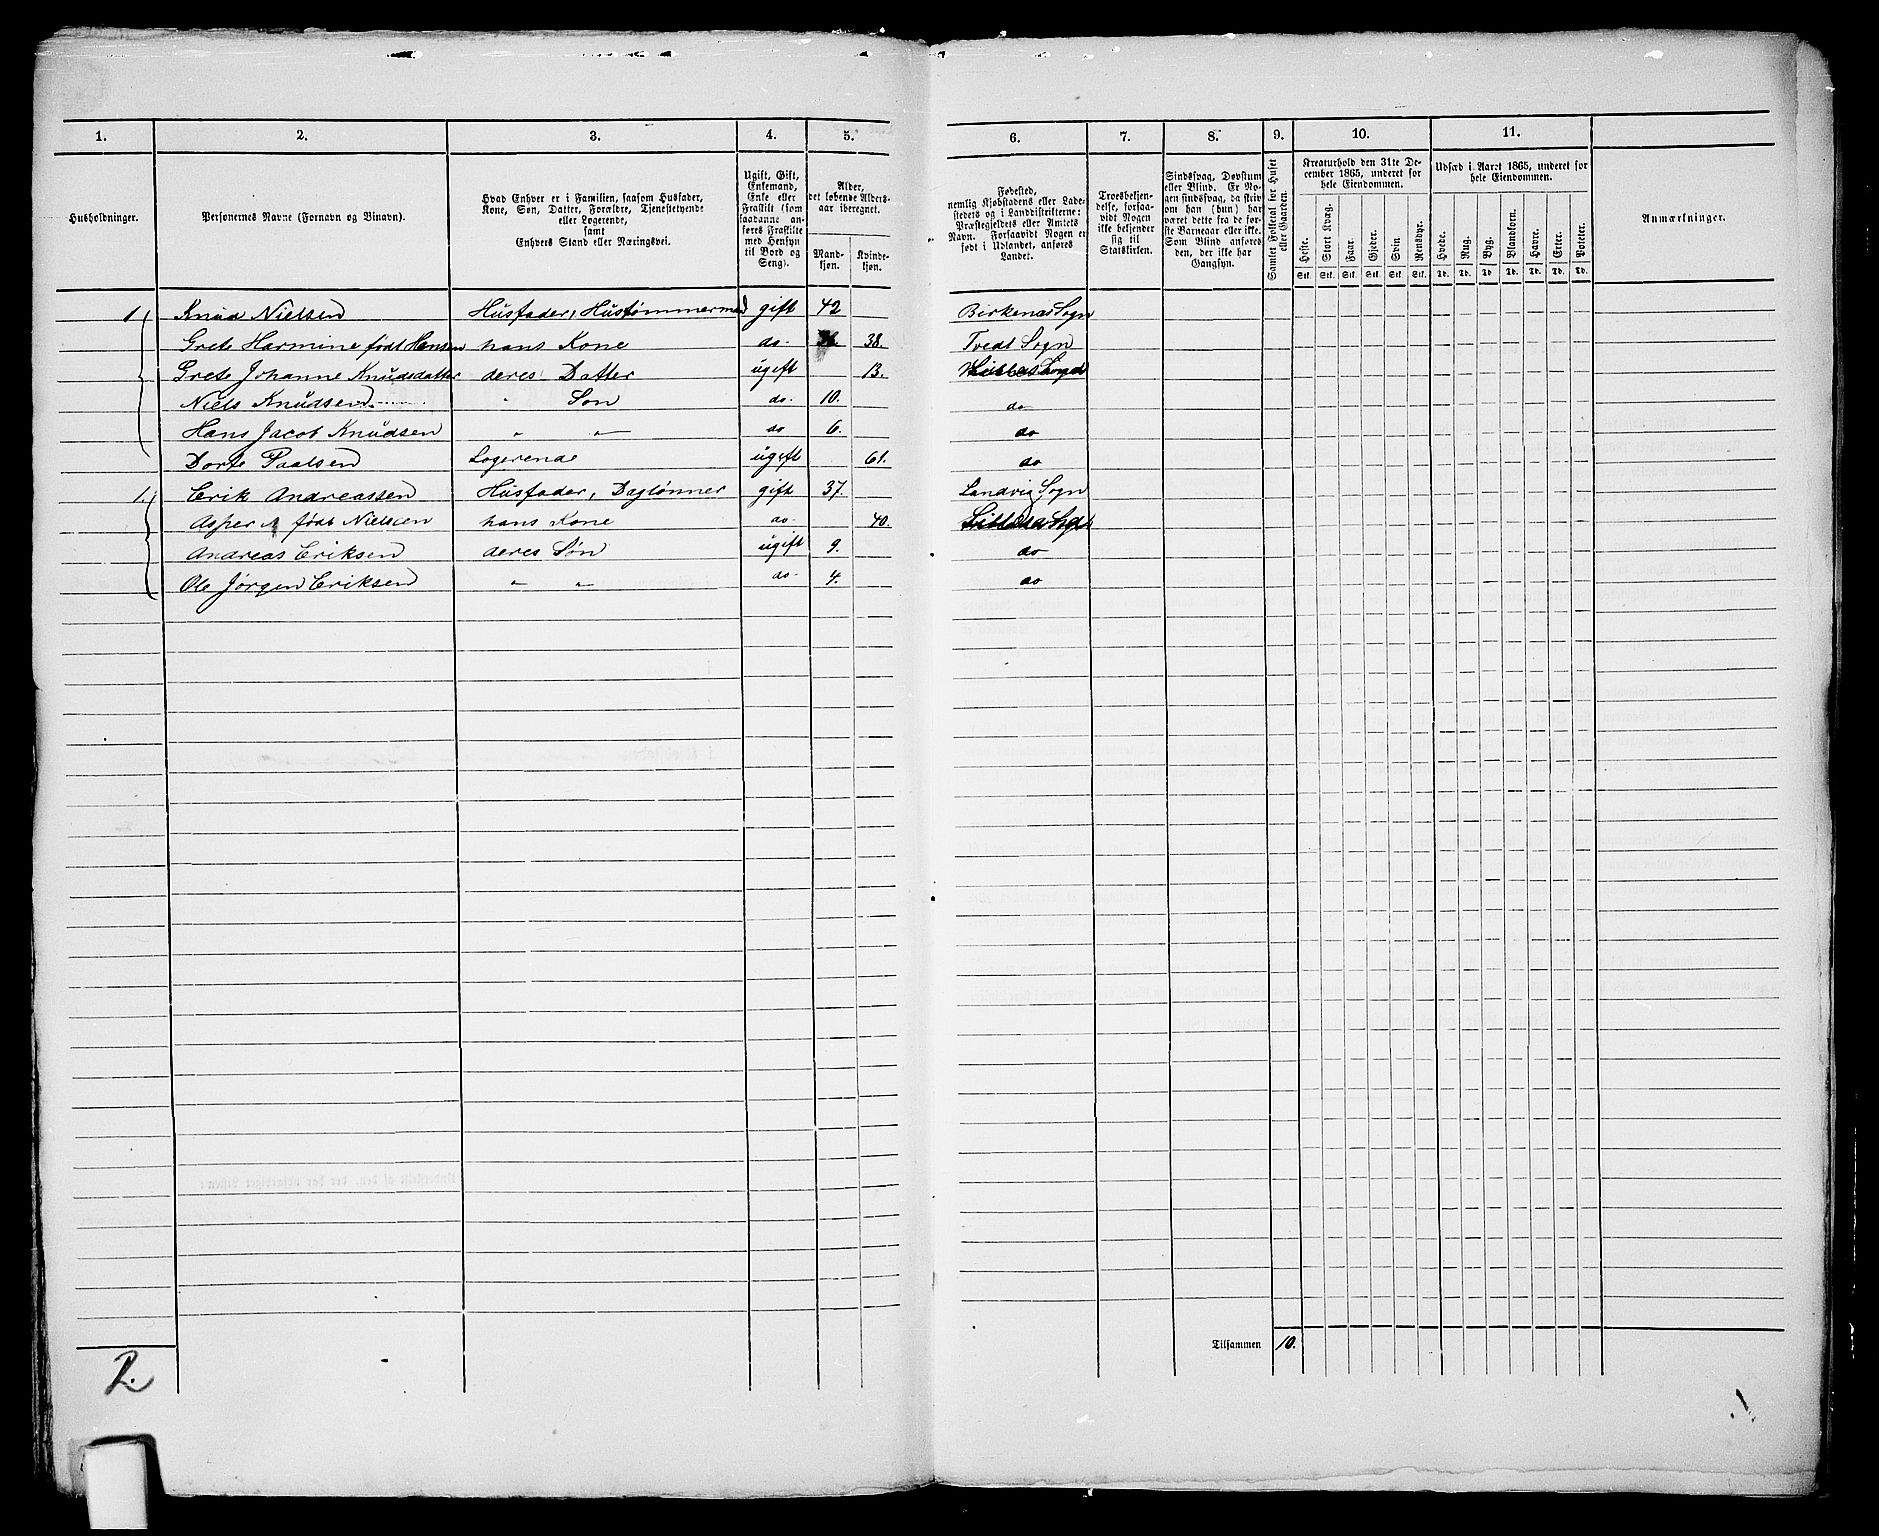 1. 2. 3. 4. 5. 6. 7. 8. 9. 10. 11.
Husholdninger.
Personernes Navne (Fornavn og Binavn).
Hvad Enhver er i Familien, saasom Husfader,
Kone, Søn, Datter, Forældre, Tjenestetyende
eller Logerende,
samt
Enhvers Stand eller Næringsvei.
Ugift, Gift,
Enkemand,
Enke eller
Fraskilt (som
saadanne an-
føres Fraskilte
med Hensyn
til Bord og
Seng).
Alder,
det løbende Alders-
aar iberegnet.
Mand-
kjøn.
Kvinde-
kjøn.
Fødested,
nemlig Kjøbstadens eller Lade-
stedets og i Landdistrikterne:
Præstegjeldets eller Amtets
Navn. Forsaavidt Nogen er
født i Udlandet, anføres
Landet.
Troesbekjen-
delse, forsaa-
vidt Nogen
ikke bekjender
sig til
Statskirken.
Sindssvag, Døvstum
eller Blind. Er No-
gen sindssvag, da skrives
om han (hun) har
været dette fra de før-
ste Barneaar eller ikke.
Som Blind anføres
den, der ikke har
Gangsyn.
Samlet Folketal for Huset
eller Gaarden.
Kreaturhold den 31te De-
cember 1865, underet for
hele Eiendommen.
Heste. Stort Kvæg. Faar. Gjeder. Svin Rensdyr.
Stk. Stk. Stk. Stk. Stk. Stk.
Udsæd i Aaret 1865, underet for
hele Eiendommen.
Hvede. Rug. Byg. Blandkorn. Havre. Erter. Poteter.
Td. Td. Td. Td. Td. Td. Td.
Anmærkninger.
1. Knud Nielsen Husfader, Hustømmermand gift 42 Birkenæs Sogn
Grete Harmine født Hansen hans Kone do. 38. Tvedt Sogn
Grete Johanne Knudsdatter deres Datter ugift 13.
Niels Knudsen " Søn do. 10. do
Hans Jacob Knudsen " " do 6. do
Dorte Paalsen Logerende ugift 61. do
1. Erik Andreassen Husfader, Daglønner gift 37. Landvig Sogn
født Nielsen hans Kone do. 40.
Andreas Eriksen deres Søn ugift 9. do
Ole Jørgen Eriksen " " do. 4. do
Tilsammen 10.
2.